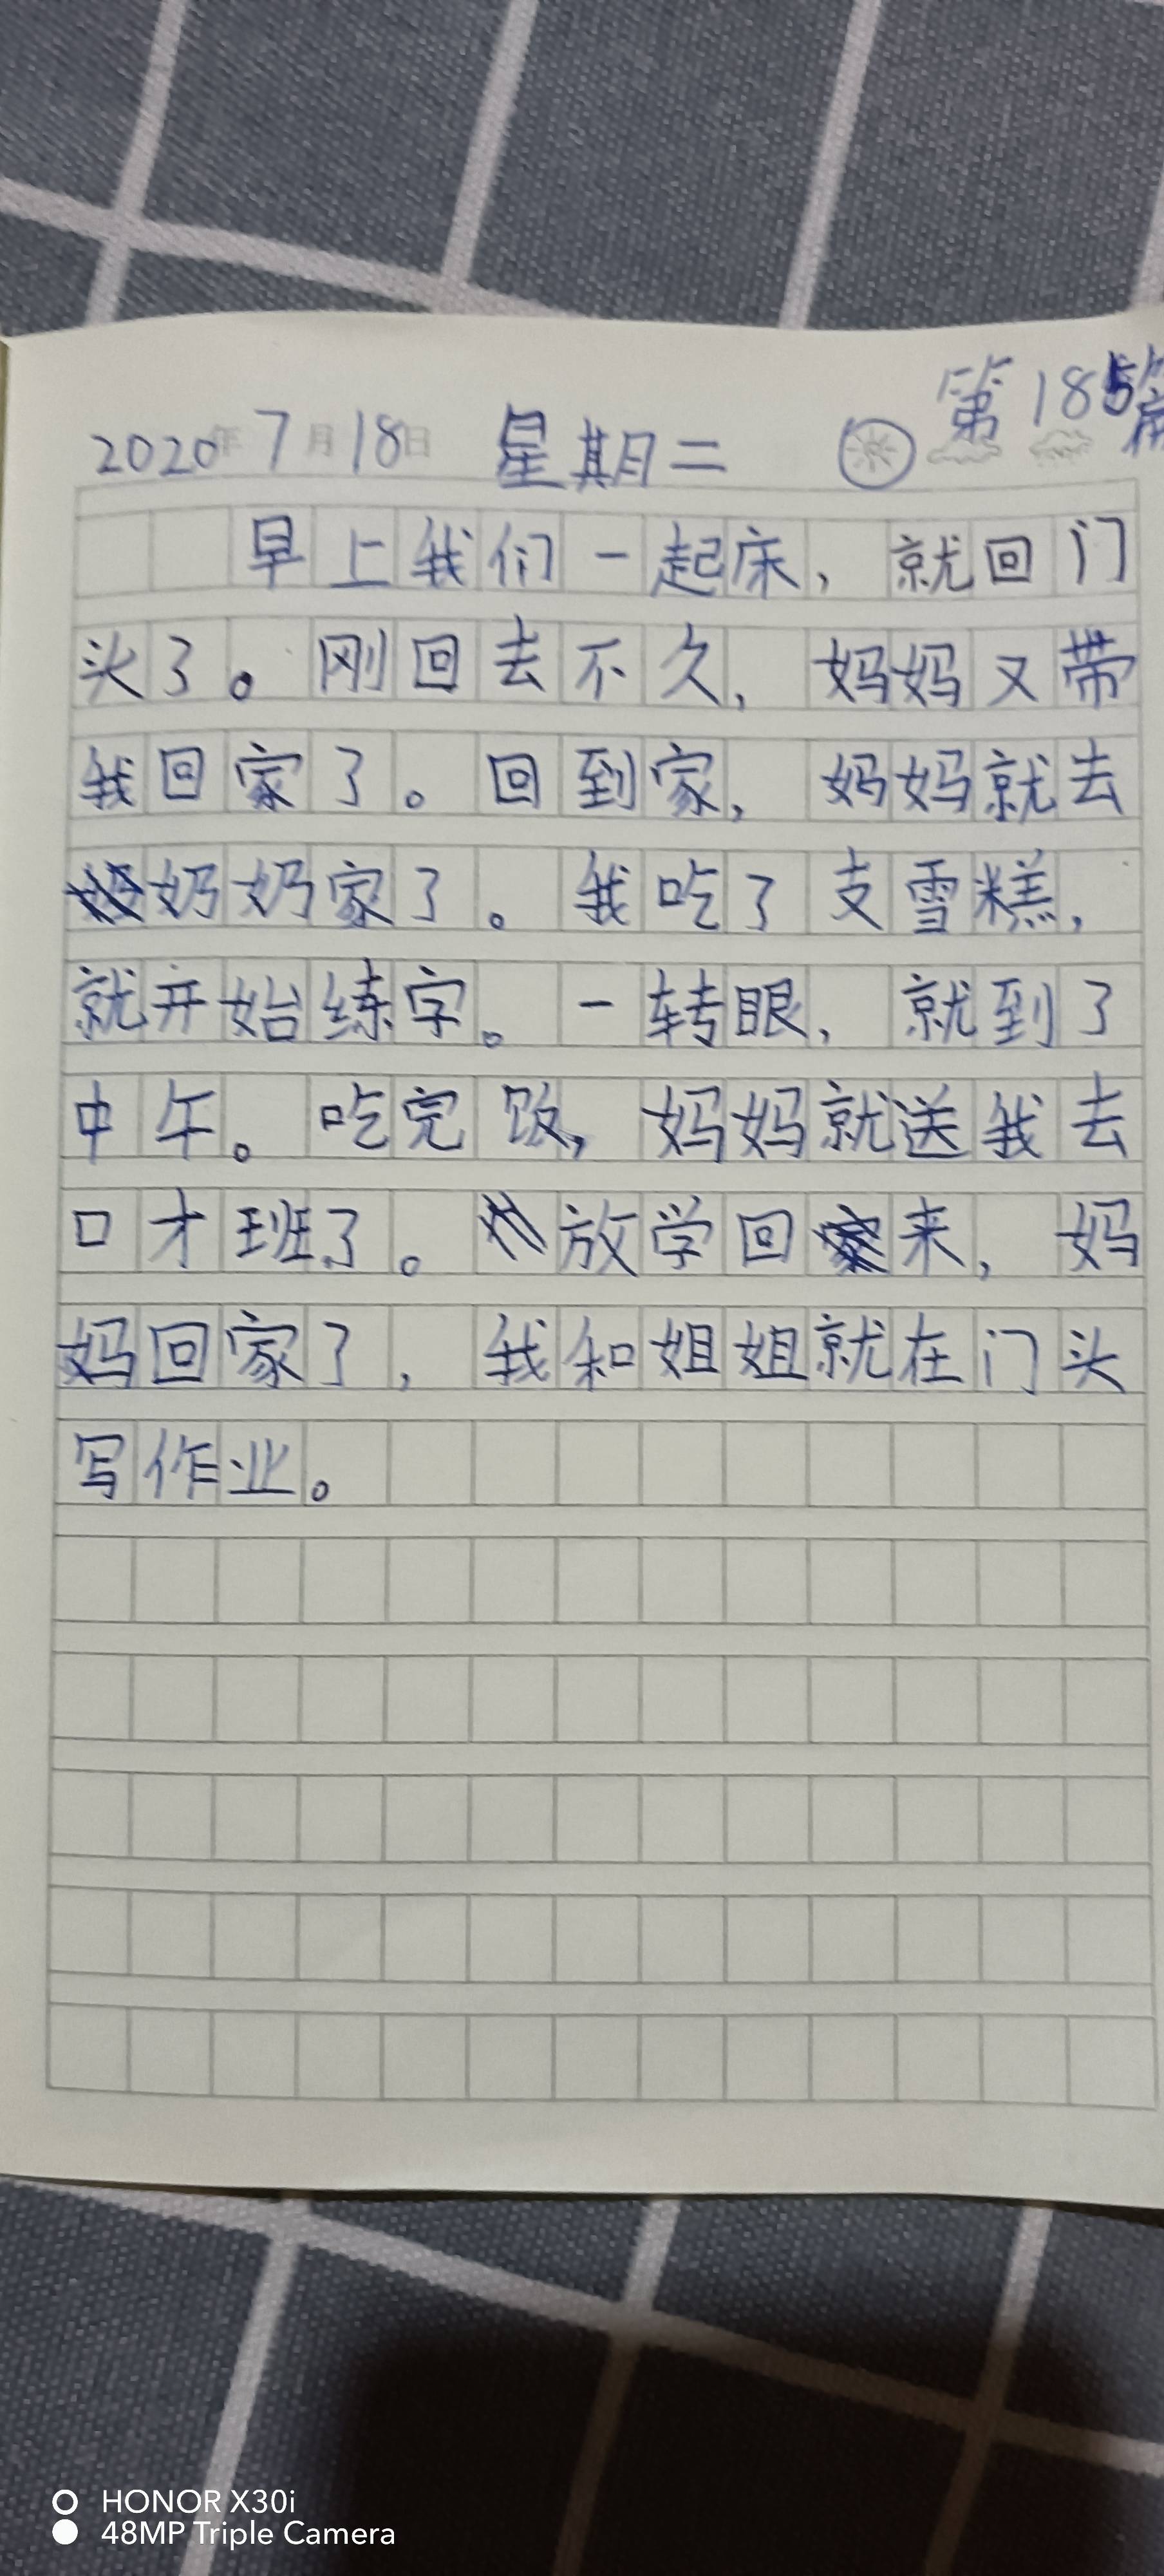 第185篇
2020年7月18日 星期二
早上我们一起床，就回门
头了。刚回去不久，妈妈又带
我回家了。回到家，妈妈就去
奶奶家了。我吃了支雪糕，
就开始练字。一转眼，就到了
中午。吃完饭，妈妈就送我去
口才班了。放学回来，妈
妈回家了，我和姐姐就在门头
写作业。
HONOR X30i
48MP Triple Camera